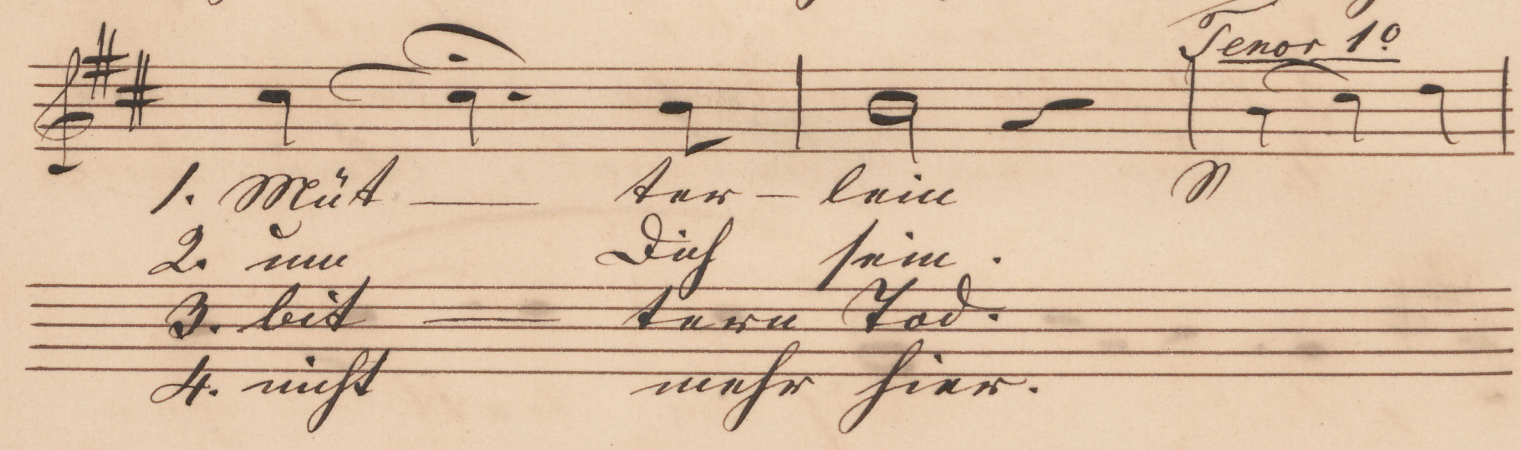 Tenor 1º
1. Müt — ter – lein
2. um Dich sein.
3. bit — tern Tod.
4. nicht mehr hier.